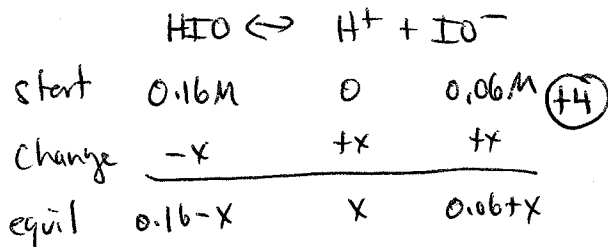 HIO <-> H+ + IO-
start 0.16M 0 0.06M +4
Change -x +x +x
equil 0.16-x x 0.06+x